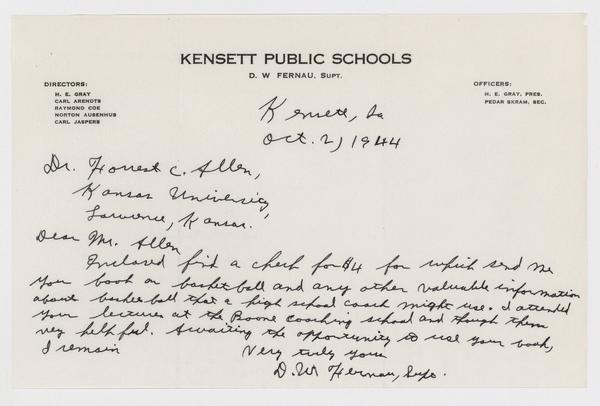 KENSETT PUBLIC SCHOOLS
D. W FERNAU, SUPT.
DIRECTORS:
H. E. GRAY
CARL ARENDTS
RAYMOND COE
NORTON AUSENHUS
CARL JASPERS
OFFICERS:
H. E. GRAY, PRES.
PEDAR SKRAM, SEC.
Kensett, Ia
Oct. 2, 1944
Dr. Forrest C. Allen,
Kansas University,
Lawrence, Kansas.
Dear Mr. Allen
Enclosed find a check for $4 for which send me
your book on basketball and any other valuable information
about basketball that a high school coach might use. I attended
your lectures at the Boone coaching school and though them
very helpful. Awaiting the opportunity to use your book,
I remain
Very truly yours
D. W. Fernau, Supt.